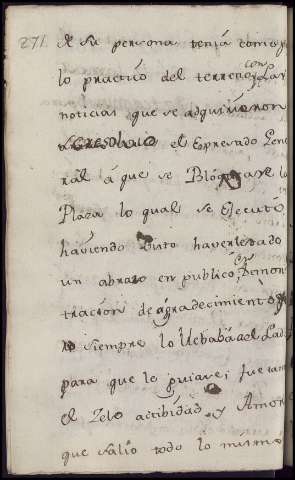 271.
de su persona, tenia como
lo practico del terreno, con las
noticias que se adquirieron
resolvio el Expresado Gene
ral á que se Bloquease la
Plaza lo qual se Executó,
haviendo Visto haverle dado
un abrazo en publico, en Demon
tracion de agradecimiento, y
siempre lo llebaba al Lado
para que le guiase; fue tan
el Zelo actibidad y Amor
que salio todo lo mismo